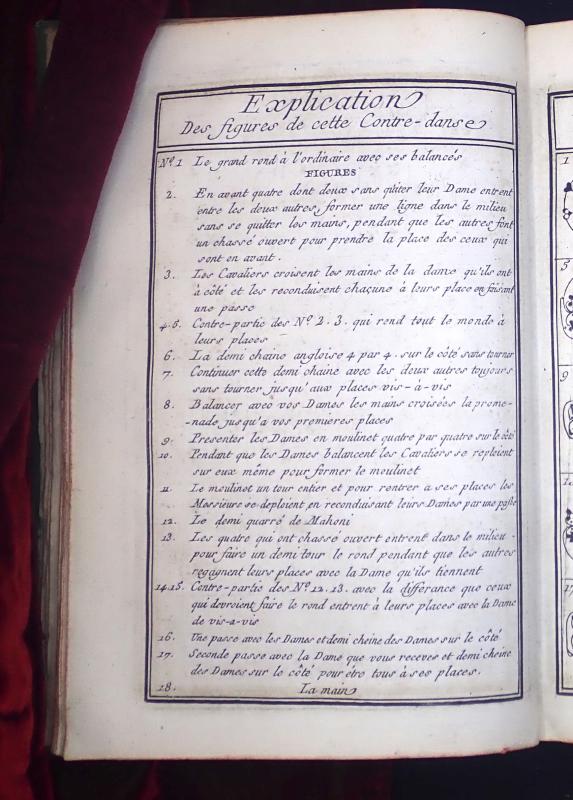 Explication
Des figures de cette Contre-danse
Nº.1 Le grand rond à l'ordinaire avec ses balancés
FIGURES
2. En avant quatre dont deux sans qüiter leur Dame entrent
entre les deux autres, former une ligne dans le milieu
sans se quitter les mains, pendant que les autres font
un chassé ouvert pour prendre la place des ceux qui
sont en avant.
3. Les Cavaliers croisent les mains de la dame qu'ils ont
à côté et les reconduisent chaçune à leurs place en faisant
une passe
4.5. Contre-partie des Nº 2.3. qui rend tout le monde à
leurs places
6. La demi chaine angloise 4 par 4. sur le côté sans tourner
7. Continuer cette demi chaine avec les deux autres toujours
sans tourner jusqu'aux places vis-à-vis
8. Balancer avec vos Dames les mains croisées la prome-
-nade jusqu'a vos premieres places
9. Presenter les Dames en moulinet quatre par quatre sur le côté
10. Pendant que les Dames balancent les Cavaliers se reploient
sur eux même pour former le moulinet
11. Le moulinet un tour entier et pour rentrer a ses places les
Messieurs se deploient en reconduisant leurs Dames par une passe
12. Le demi quarré de Mahoni
13. Les quatre qui ont chassé ouvert entrent dans le milieu -
pour faire un demi tour le rond pendant que les autres
regagnent leurs places avec la Dame qu'ils tiennent
14.15. Contre-partie des Nº 12.13. avec la differance que ceux
qui devroient faire le rond entrent à leurs places avec la Dame
de vis-a-vis
16. Une passe avec les Dames et demi cheine des Dames sur le côté
17. Seconde passe avec la Dame que vous receves et demi cheine
des Dames sur le côté pour étre tous à ses places.
18. La main
1
5
9